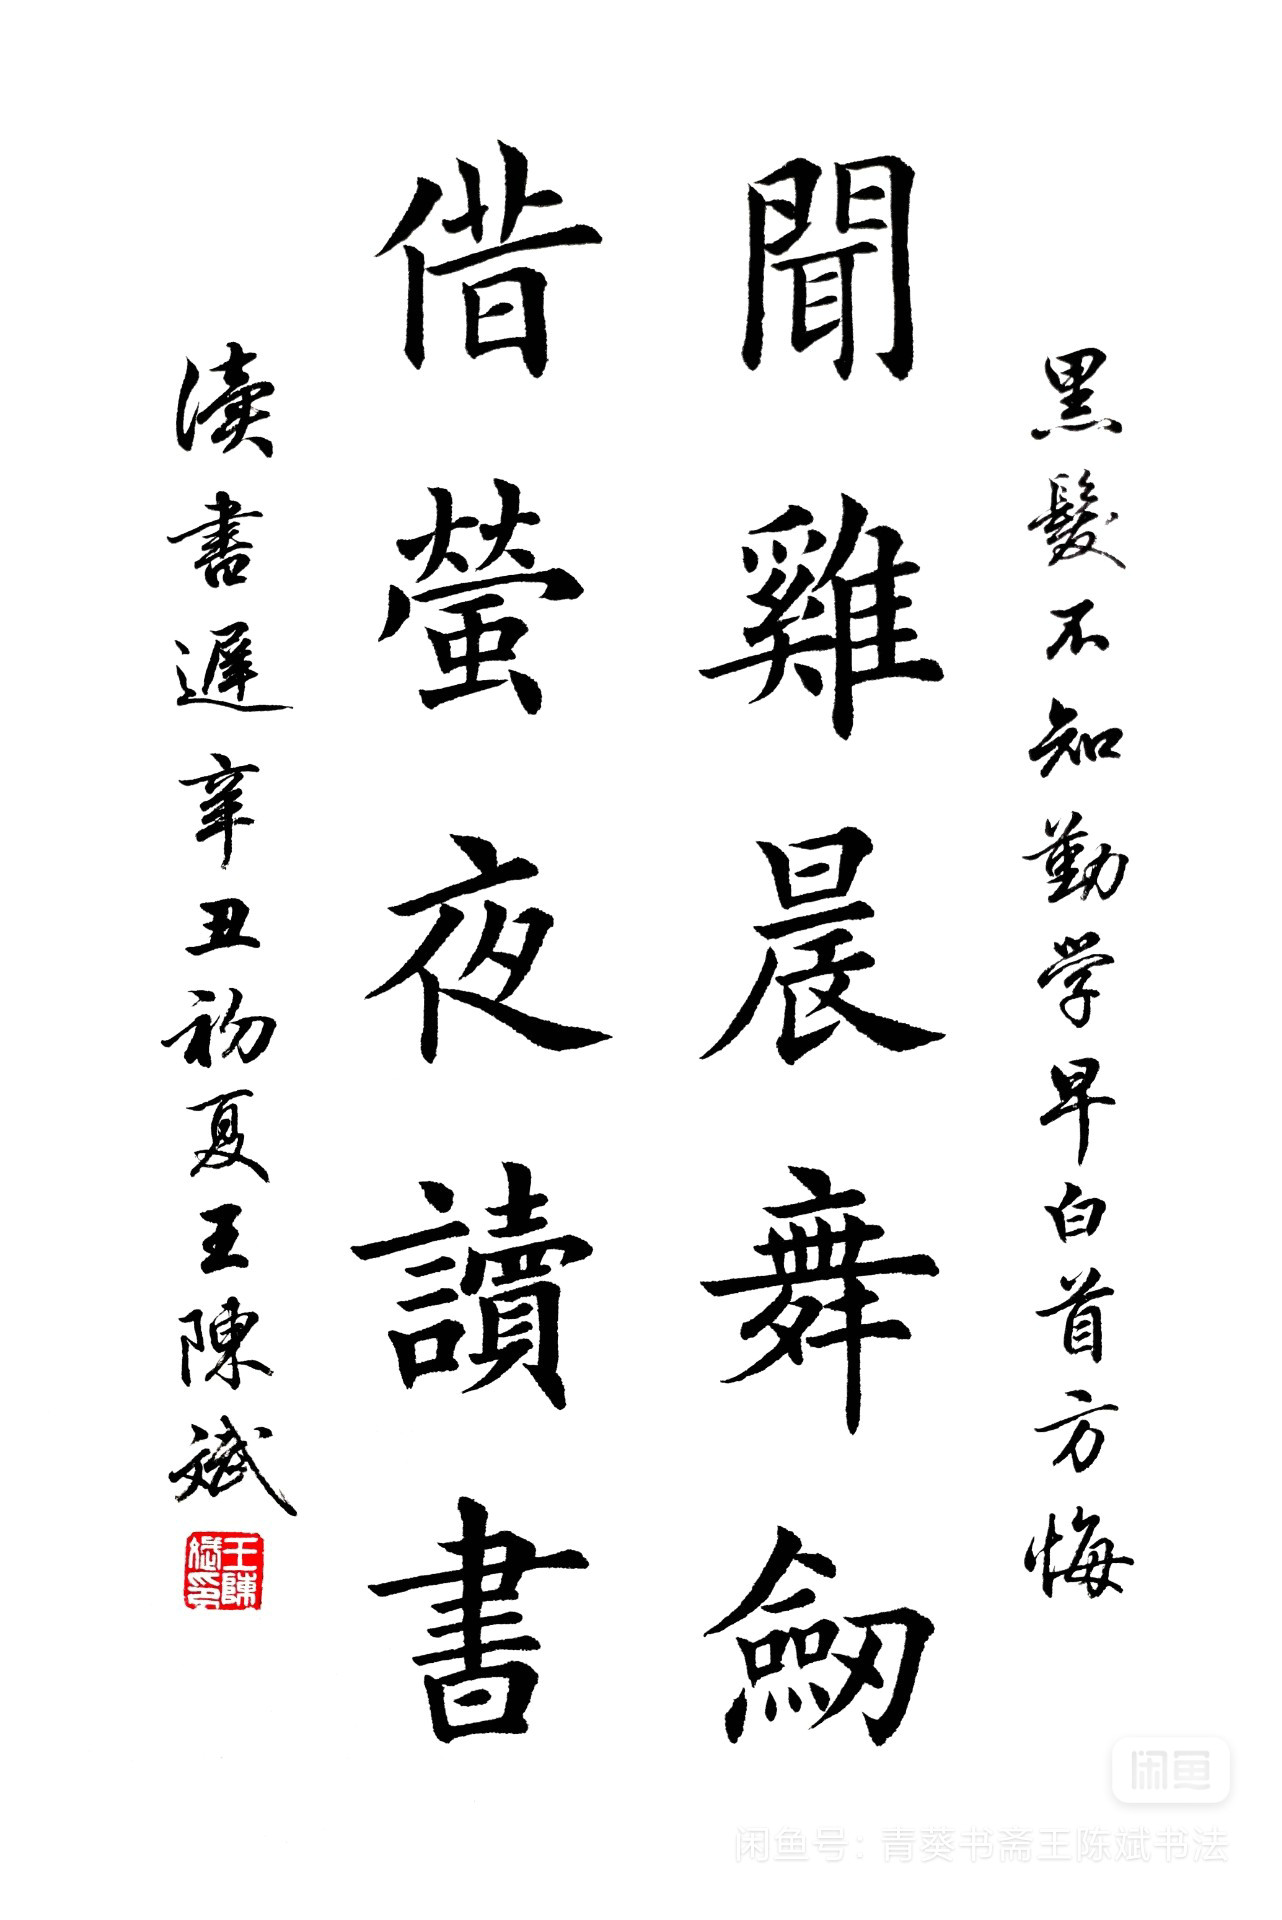 黑髮不知勤学早白首方悔
聞雞晨舞劒
借螢夜讀書
讀書遲辛丑初夏王陳斌
王陳斌印
闲鱼
闲鱼号：青葵书斋王陈斌书法